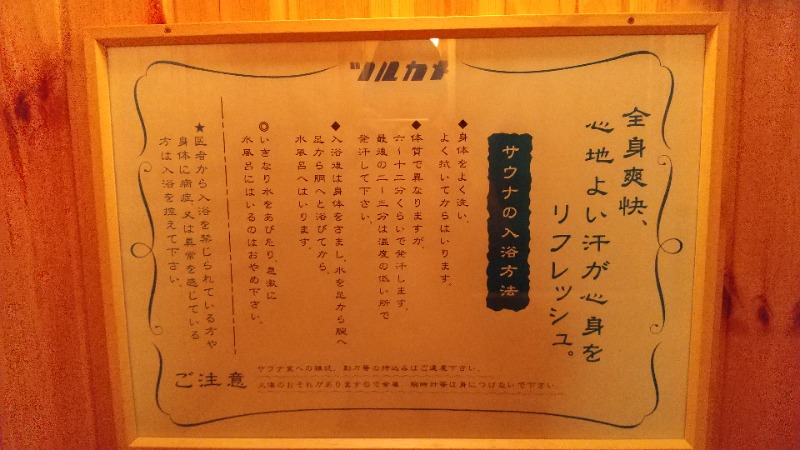 ツルカメ
全身爽快、
心地よい汗が心身を
リフレッシュ。
サウナの入浴方法
◆身体をよく洗い、
よく拭いてからはいります。
◆体質で異なりますが、
六〜十二分くらいで発汗します。
最後の二〜三分は温度の低い所で
発汗して下さい。
◆入浴後は身体をさまし、水を足から腕へ
足から胴へと浴びてから、
水風呂へはいります。
◎いきなり水をあびたり、急激に
水風呂にはいるのはおやめ下さい。
★医者から入浴を禁じられている方や
身体に病症、又は異常を感じている
方は入浴を控えて下さい。
ご注意
サウナ室への雑誌、新聞等の持込みはご遠慮下さい。
火傷のおそれがありますので金属、腕時計等は身につけないで下さい。